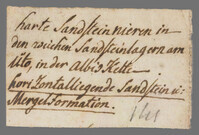 harte Sandsteinnieren in
den weichen Sandsteinlagern am
Uto, in der Albis Kette
horizontalliegende Sandstein u:
Mergel Formation.